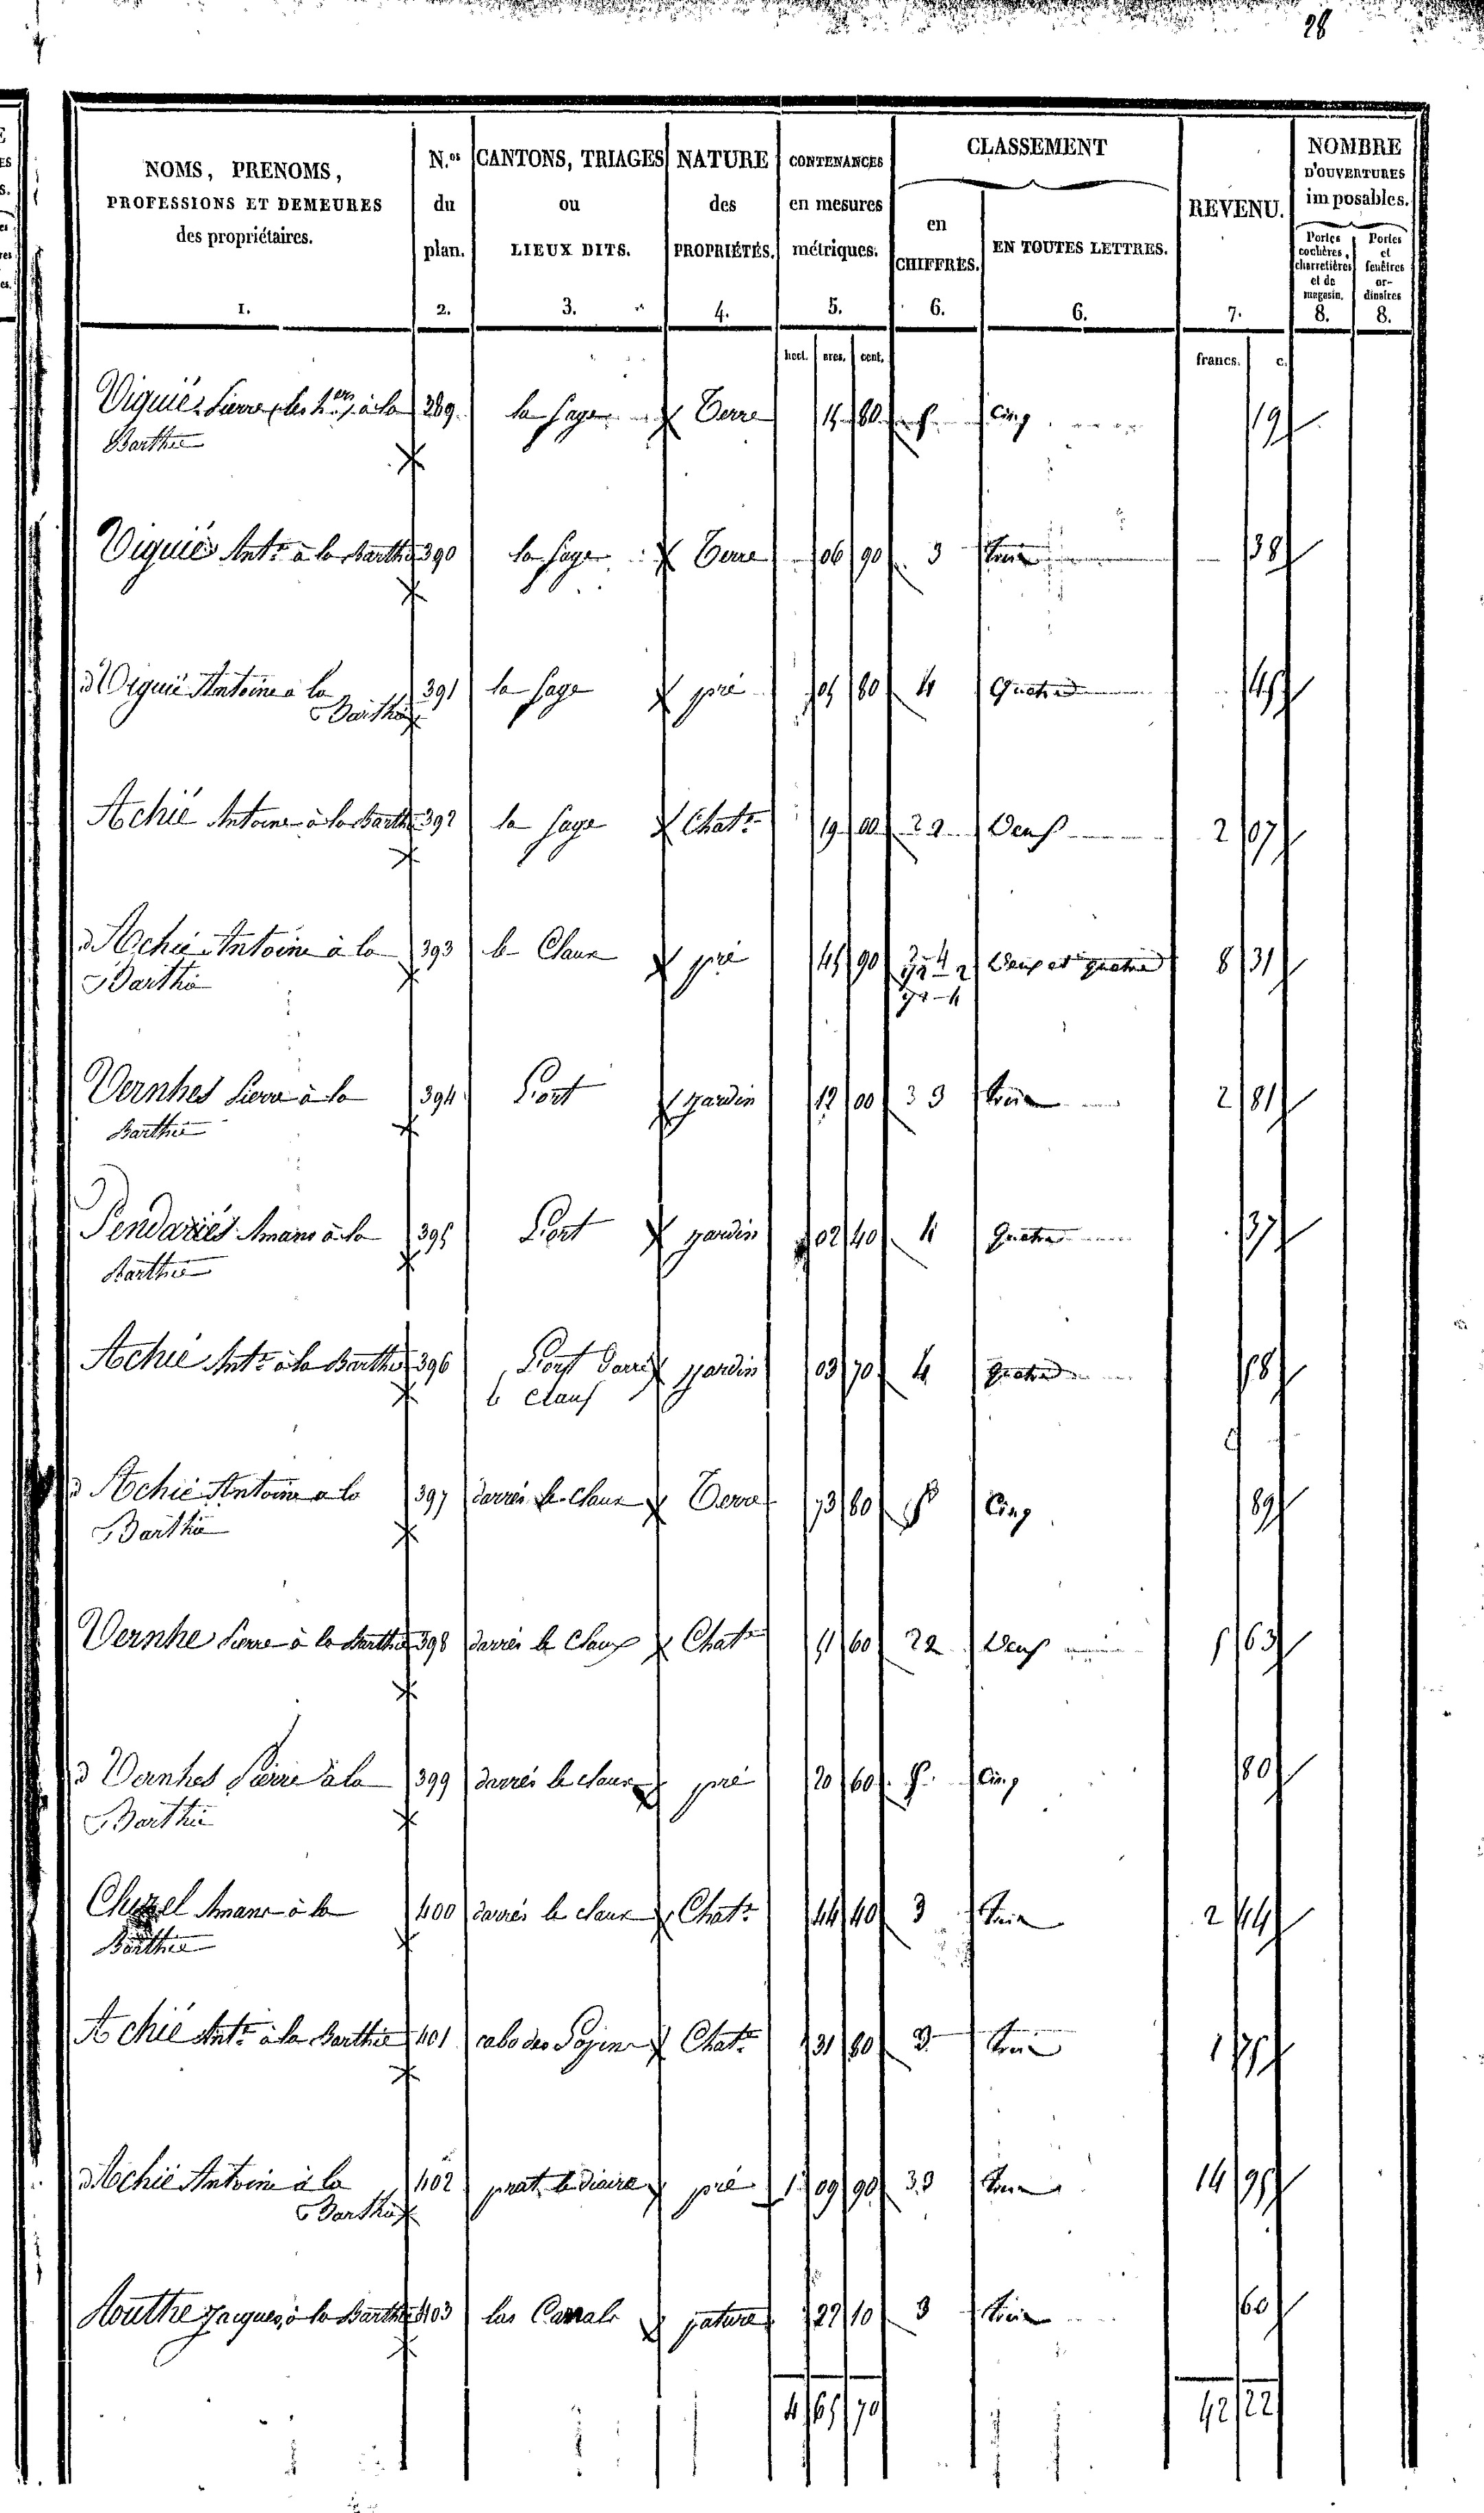 28
NOMS, PRENOMS,
PROFESSIONS ET DEMEURES
des propriétaires.
1.
N.os
du
plan.
2.
CANTONS, TRIAGES
ou
LIEUX DITS.
3.
NATURE
des
PROPRIÉTÉS.
4.
CONTENANCES
en mesures
métriques.
5.
CLASSEMENT
en
CHIFFRES.
6.
EN TOUTES LETTRES.
6.
REVENU.
7.
NOMBRE
D'OUVERTURES
imposables.
Portes
cochères,
charretières
et de
magasin.
8.
Portes
et
fenêtres
or-
dinaires
8.
hect. ares. cent.
francs. c.
Viguié Pierre à la 389 la fage Terre 15 80 5 Cinq 19
Barthe
Viguié Ant.e à la Barthe 390 la fage Terre 06 90 3 trois 38
d Viguié Antoine à la 391 la fage pré 05 80 4 Quatre 45
Barthe
Achié Antoine à la Barthe 392 la fage Chat.r 19 00 2 2 Deux 2 07
d Achié Antoine à la 393 le Claux pré 45 90 Deux et quatre 8 31
Barthe
Vernhes Pierre à la 394 L'ort jardin 12 00 3 3 trois 2 81
Barthe
Pendariés Amans à la 395 L'ort jardin 02 40 4 Quatre 37
Barthe
Achié Ant.e à la Barthe 396 L'ort darrè jardin 03 70 4 Quatre 58
le claux
d Achié Antoine a la 397 darrès le claux Terre 73 80 5 Cinq 89
Barthe
Vernhe Pierre à la Barthe 398 darrès le Claux Chat.r 51 60 2 2 Deux 5 63
d Vernhes Pierre à la 399 darrès le claux pré 20 60 5 Cinq 80
Barthe
Amans à la 400 darrès le claux Chat.r 44 40 3 trois 2 44
Barthe
Achié Ant.e à la Barthe 401 Chat.r 31 80 3 trois 1 75
d Achié Antoine à la 402 prat pré 1 09 90 3 3 trois 14 95
Barthe
Mouthe Jacques à la Barthe 403 las pature 22 10 3 trois 60
4 65 70 42 22